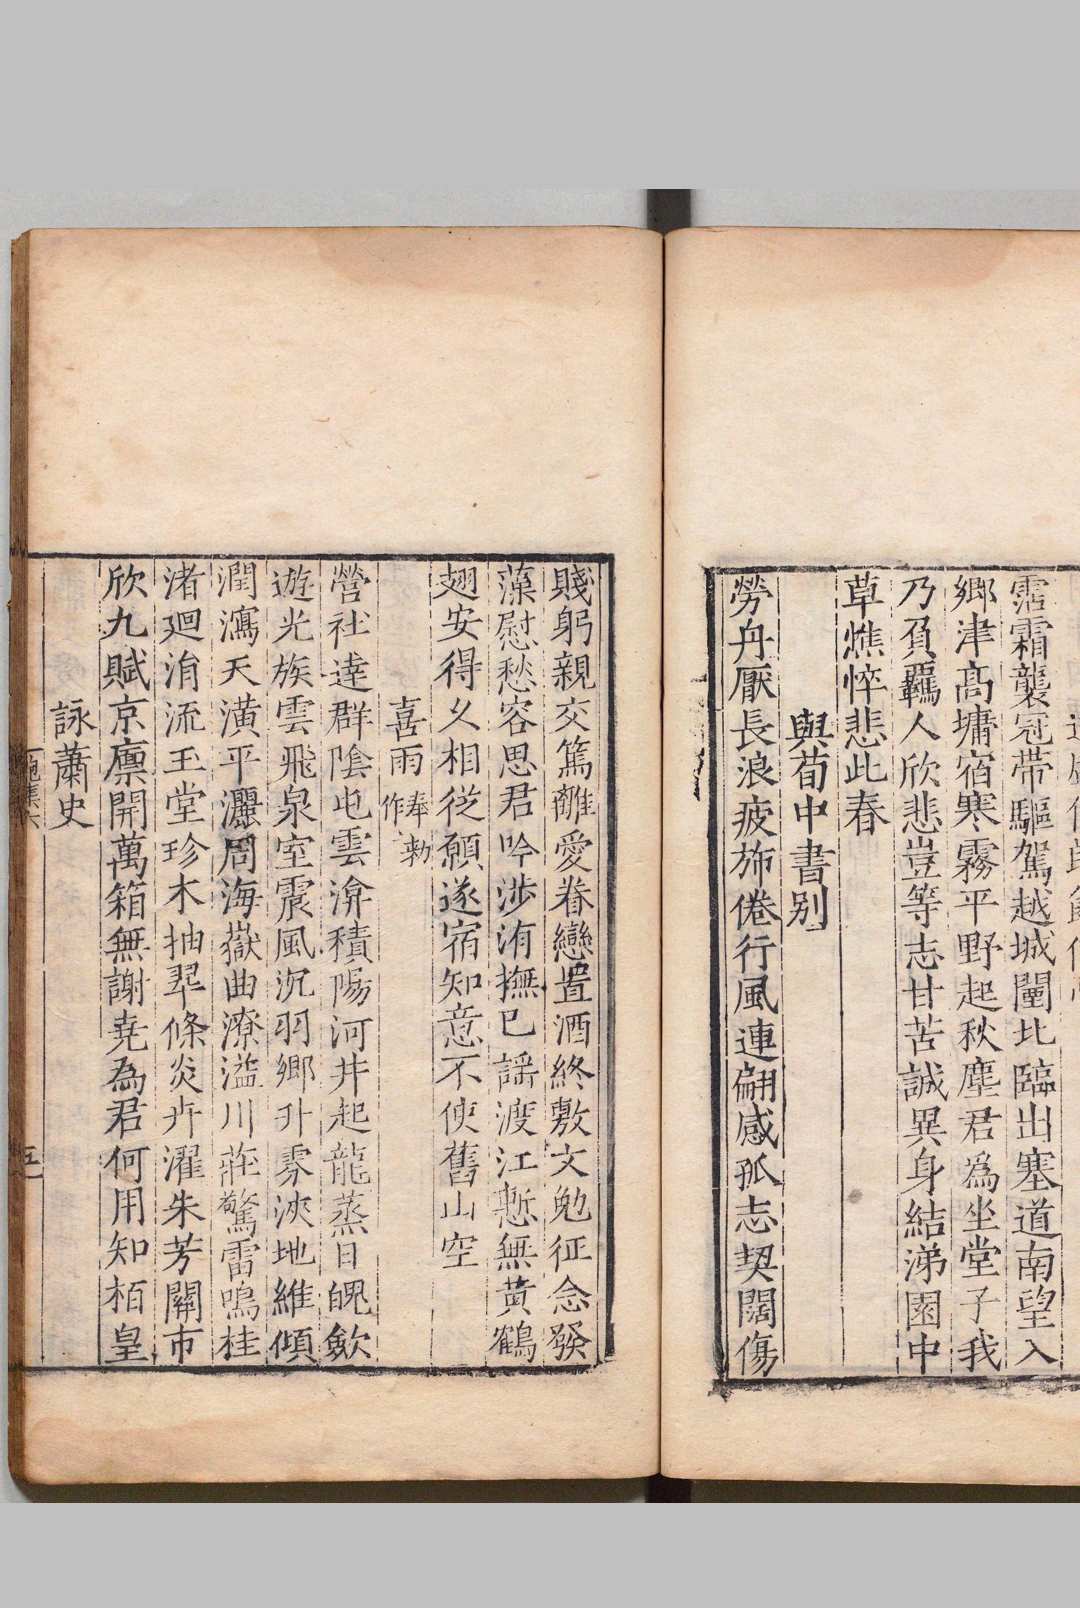 霑霜襲冠帶驅駕越城闉北臨出塞道南望入
鄉津高墉宿寒霧平野起秋塵君爲坐堂子我
乃負羈人欣悲豈等志甘苦誠異身結涕園中
草憔悴悲此春
與荀中書别
勞舟厭長浪疲斾倦行風連翩感孤志契闊傷
賤躬親交篤離愛眷戀置酒終敷文勉征念發
藻慰愁容思君吟涉洧撫已謡渡江慙無黃鶴
翅安得久相從願遂宿知意不使舊山空
喜雨奉勑作
營社達群陰屯雲渰積陽河井起龍蒸日魄斂
遊光族雲飛泉室震風沉羽鄉升雰浹地維傾
潤瀉天潢平灑周海嶽曲潦溢川莊驚雷鳴桂
渚迴涓流玉堂珍木抽翠條炎卉濯朱芳關市
欣九賦京廪開萬箱無謝尭為君何用知栢皇
詠蕭史
鮑集六
五